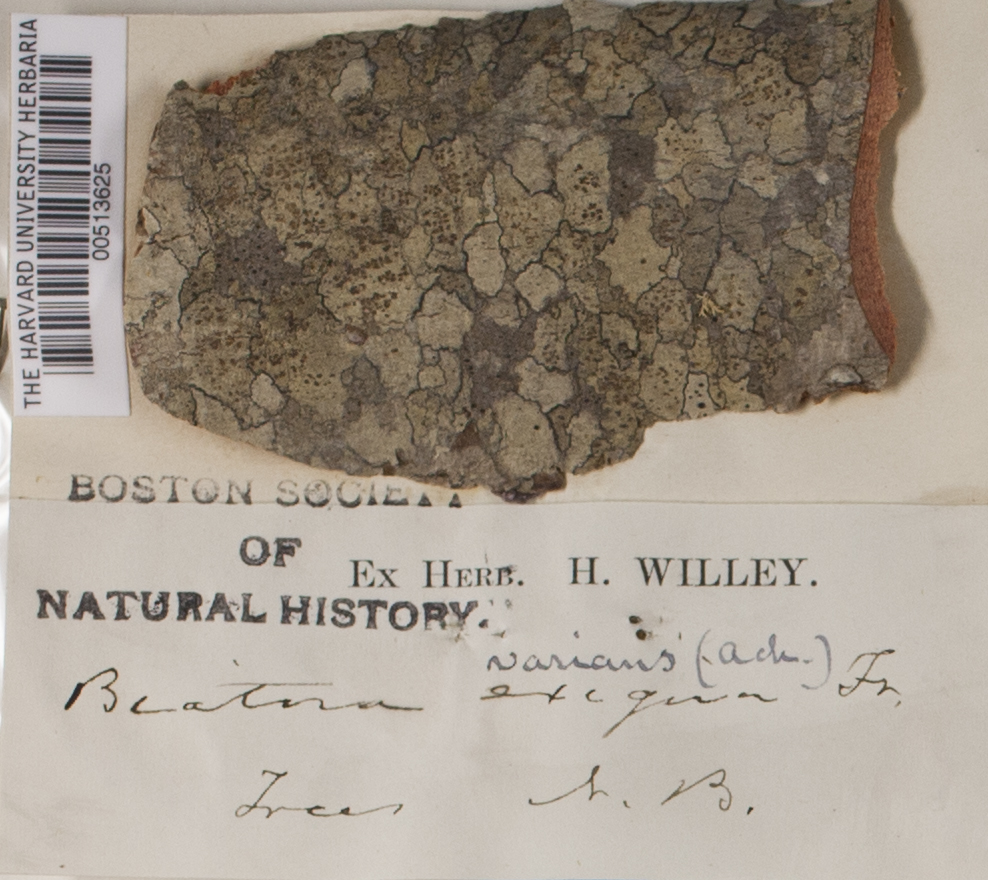 THE HARVARD UNIVERSITY HERBARIA
00513625
BOSTON SOCIETY
OF
NATURAL HISTORY.
Ex Herb. H. WILLEY.
varians (Ach.)
Biatora exigua Fr.
Trees N. B.